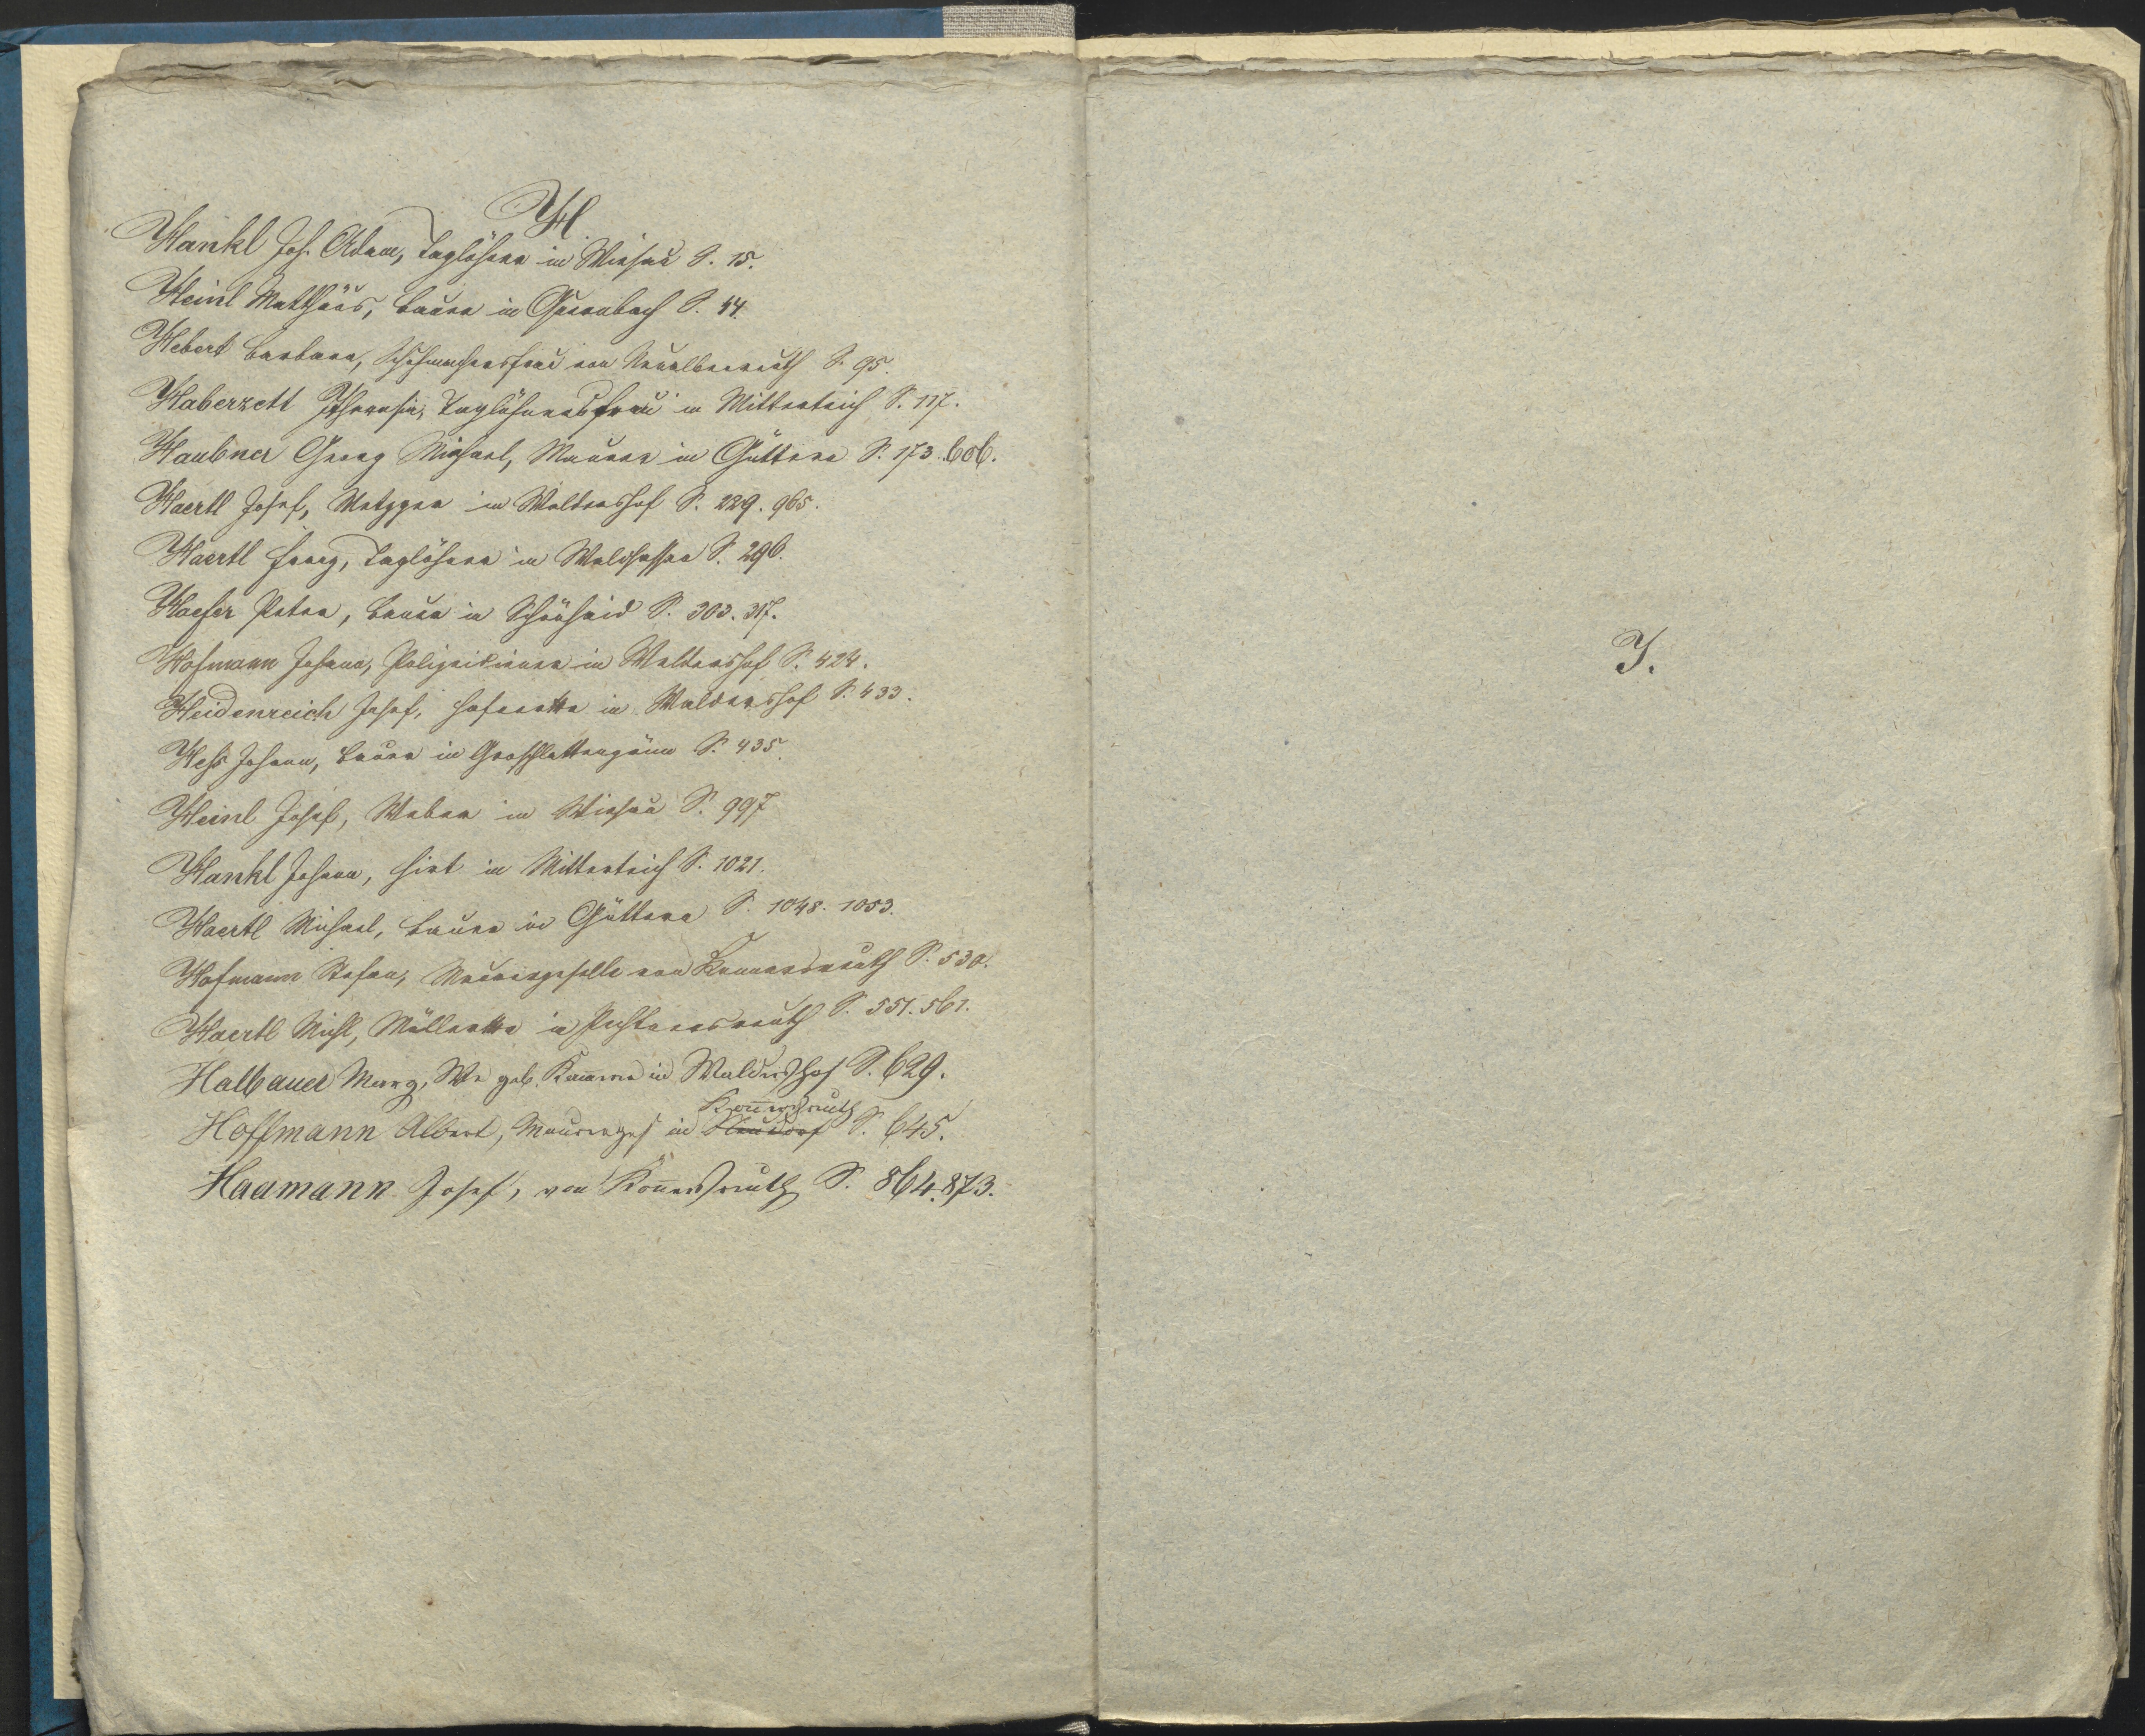 H
Hankl Joh. Adam, Taglöhner in Wiesau S. 15.
Heinl Matthäus, Bauer in S. 44.
Hebert Barbara, Schuhmachersfrau von Neualbenreuth S. 95.
Haberzett Theresia, Taglöhnersfrau in Mitterteich S. 117.
Haubner Georg Michael, Maurer in Güttern S. 173. 606.
Haertl Josef, Metzger in Waltershof S. 229. 965.
Haertl Georg, Taglöhner in Waldsassen S. 296.
Haefer Peter, Bauer in Schönhaid S. 303. 317.
Hofmann Johann, Polizeidiener in Waltershof S. 424.
Heidenreich Josef, in Waldershof S. 433.
Hess Johann, Bauer in Grosschlattengrün S. 435.
Heinl Josef, Weber in Wiesau S. 997
Hankl Johann, Hirt in Mitterteich S. 1021.
Haertl Michael, Bauer in Güttern S. 1048. 1053.
Hofmann Stefan, Maurergeselle von Konnersreuth S. 530.
Haertl Michl, in Pechtnersreuth S. 551. 561.
Halbauer Marg, We geb. in Waldershof S. 629.
Hoffmann Albert, Maurerges in Kon̄ersreuth S. 645.
Haamann Josef, von Kon̄ersreuth S. 864. 873.
J.